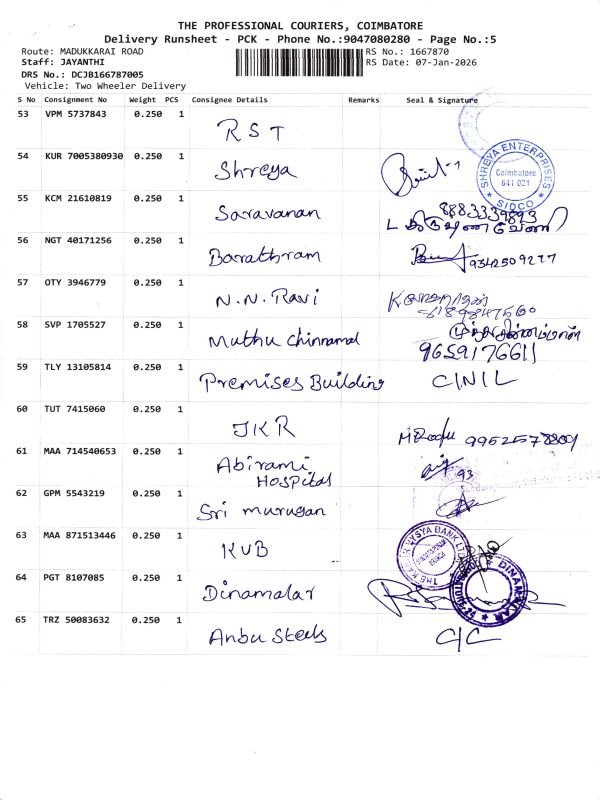 THE PROFESSIONAL COURIERS, COIMBATORE
Delivery Runsheet - PCK - Phone No.:9047080280 - Page No.:5
Route: MADUKKARAI ROAD RS No.: 1667870
Staff: JAYANTHI RS Date: 07-Jan-2026
DRS No.: DCJB166787005
Vehicle: Two Wheeler Delivery
S No Consignment No Weight PCS Consignee Details Remarks Seal & Signature
53 VPM 5737843 0.250 1 RST
54 KUR 7005380930 0.250 1 Shreya
SHREYA ENTERPRISES
Coimbatore
641 021
SIDCO
55 KCM 21610819 0.250 1 Saravanan 8883339893
56 NGT 40171256 0.250 1 Barathram 9342509277
57 OTY 3946779 0.250 1 N.N. Ravi
58 SVP 1705527 0.250 1 Muthu chinnamal
9659176611
59 TLY 13105814 0.250 1 Premises Building C/NIL
60 TUT 7415060 0.250 1 JKR
61 MAA 714540653 0.250 1 Abirami Hospital 93
62 GPM 5543219 0.250 1 Sri murugan
63 MAA 871513446 0.250 1 KVB
VYSYA BANK LTD
64 PGT 8107085 0.250 1 Dinamalar
DINAMALAR
65 TRZ 50083632 0.250 1 Anbu Steels C/C